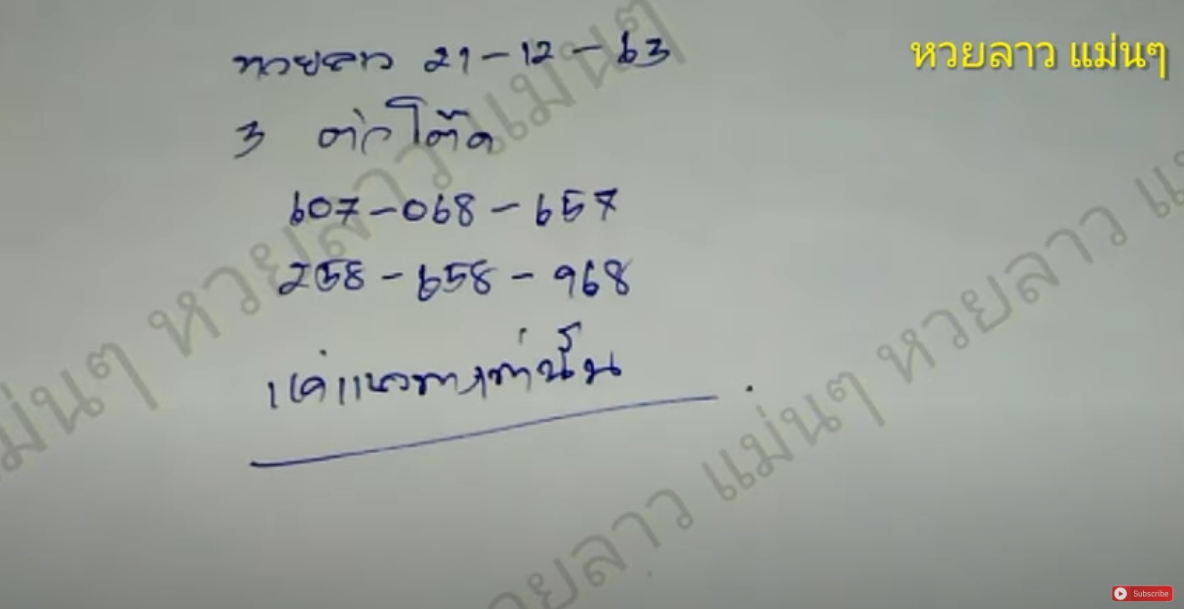 หวยลาว แม่นๆ
หวยลาว 21-12-63
3 ต่อโต๊ด
607-068-657
258-658-968
แค่แนวทางเท่านั้น
หวยลาว แม่นๆ
แม่นๆ หวยลาว แม่นๆ
หวยลาว แม่นๆ หวยลาว
Subscribe